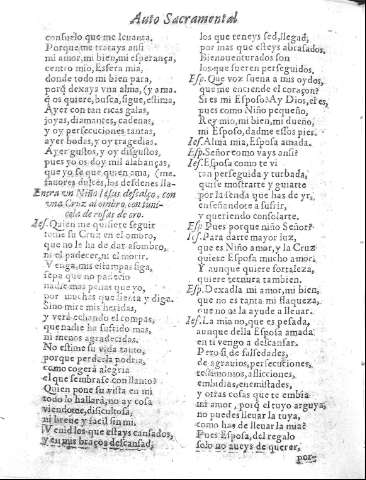 Auto Sacramental
consuelo que me leuanta.
Porque me tratays ansi
mi amor, mi bien, mi esperança,
centro mio, Esfera mia,
donde todo mi bien para,
porq̃ dexays vna alma, (y ama.
q̃ os quiere, busca, sigue, estima,
Ayer con tan ricas galas,
joyas, diamantes, cadenas,
y oy persecuciones tantas,
ayer bodas, y oy tragedias.
Ayer gustos, y oy disgustos,
pues yo os doy mil alabanças,
que yo se que quien ama, (me.
fauores dulces, los desdenes lla-
Entra vn Niño Iesus descalço, con
vna Cruz al ombro, con tuni-
cela de rosas de oro.
Ies. Quien me quisiere seguir
tome su Cruz en el ombro,
que no le ha de dar assombro,
ni el padecer, ni el morir.
Venga, mis estampas siga,
sepa que no padecio
nadie mas penas que yo,
por muchas que sienta y diga.
Sino mire mis heridas,
y verà echando el compas,
que nadie ha sufrido mas,
ni menos agradecidas.
No estime su vida tanto,
porque perderla podria,
como cogerà alegria
el que sembrase con llanto?
Quien pone su vista en mi
todo lo hallarà, no ay cosa
viendome, dificultosa,
mi breue y facil sin mi.
Venid los que estays cansados,
y en mis braços descansad;
los que teneys sed, llegad;
por mas que esteys abrasados,
Bienauenturados son
los que fueren perseguidos.
Esp. Que voz suena a mis oydos,
que me enciende el coraçon?
Si es mi Esposo? Ay Dios, el es,
pues como Niño pequeño,
Rey mio, mi bien, mi dueño,
mi Esposo, dadme essos pies.
Ies. Alma mia, Esposa amada.
Esp. Señor como vays ansi?
Ies. Esposa como te vi
tan perseguida y turbada,
quise mostrarte y guiarte
por la senda que has de yr,
enseñandote a sufrir,
y queriendo consolarte.
Esp. Pues porque niño Señor?
Ies. Para darte mayor luz,
que es Niño amor, y la Cruz
quiere Esposa mucho amor.
Y aunque quiere fortaleza,
quiere ternura tambien.
Esp. Dexadla mi amor, mi bien,
que no es tanta mi flaqueza,
que no os la ayude a lleuar.
Ies. La mia no, que es pesada,
aunque della Esposa amada
en ti vengo a descansar.
Pero si de falsedades,
de agrauios, persecuciones,
testimonios, aflicciones,
embidias, enemistades,
y otras cosas que te embia
mi amor, porq̃ el tuyo arguya,
no puedes lleuar la tuya,
como has de lleuar la mia?
Pues Esposa, del regalo
solo no aueys de querer,
por-